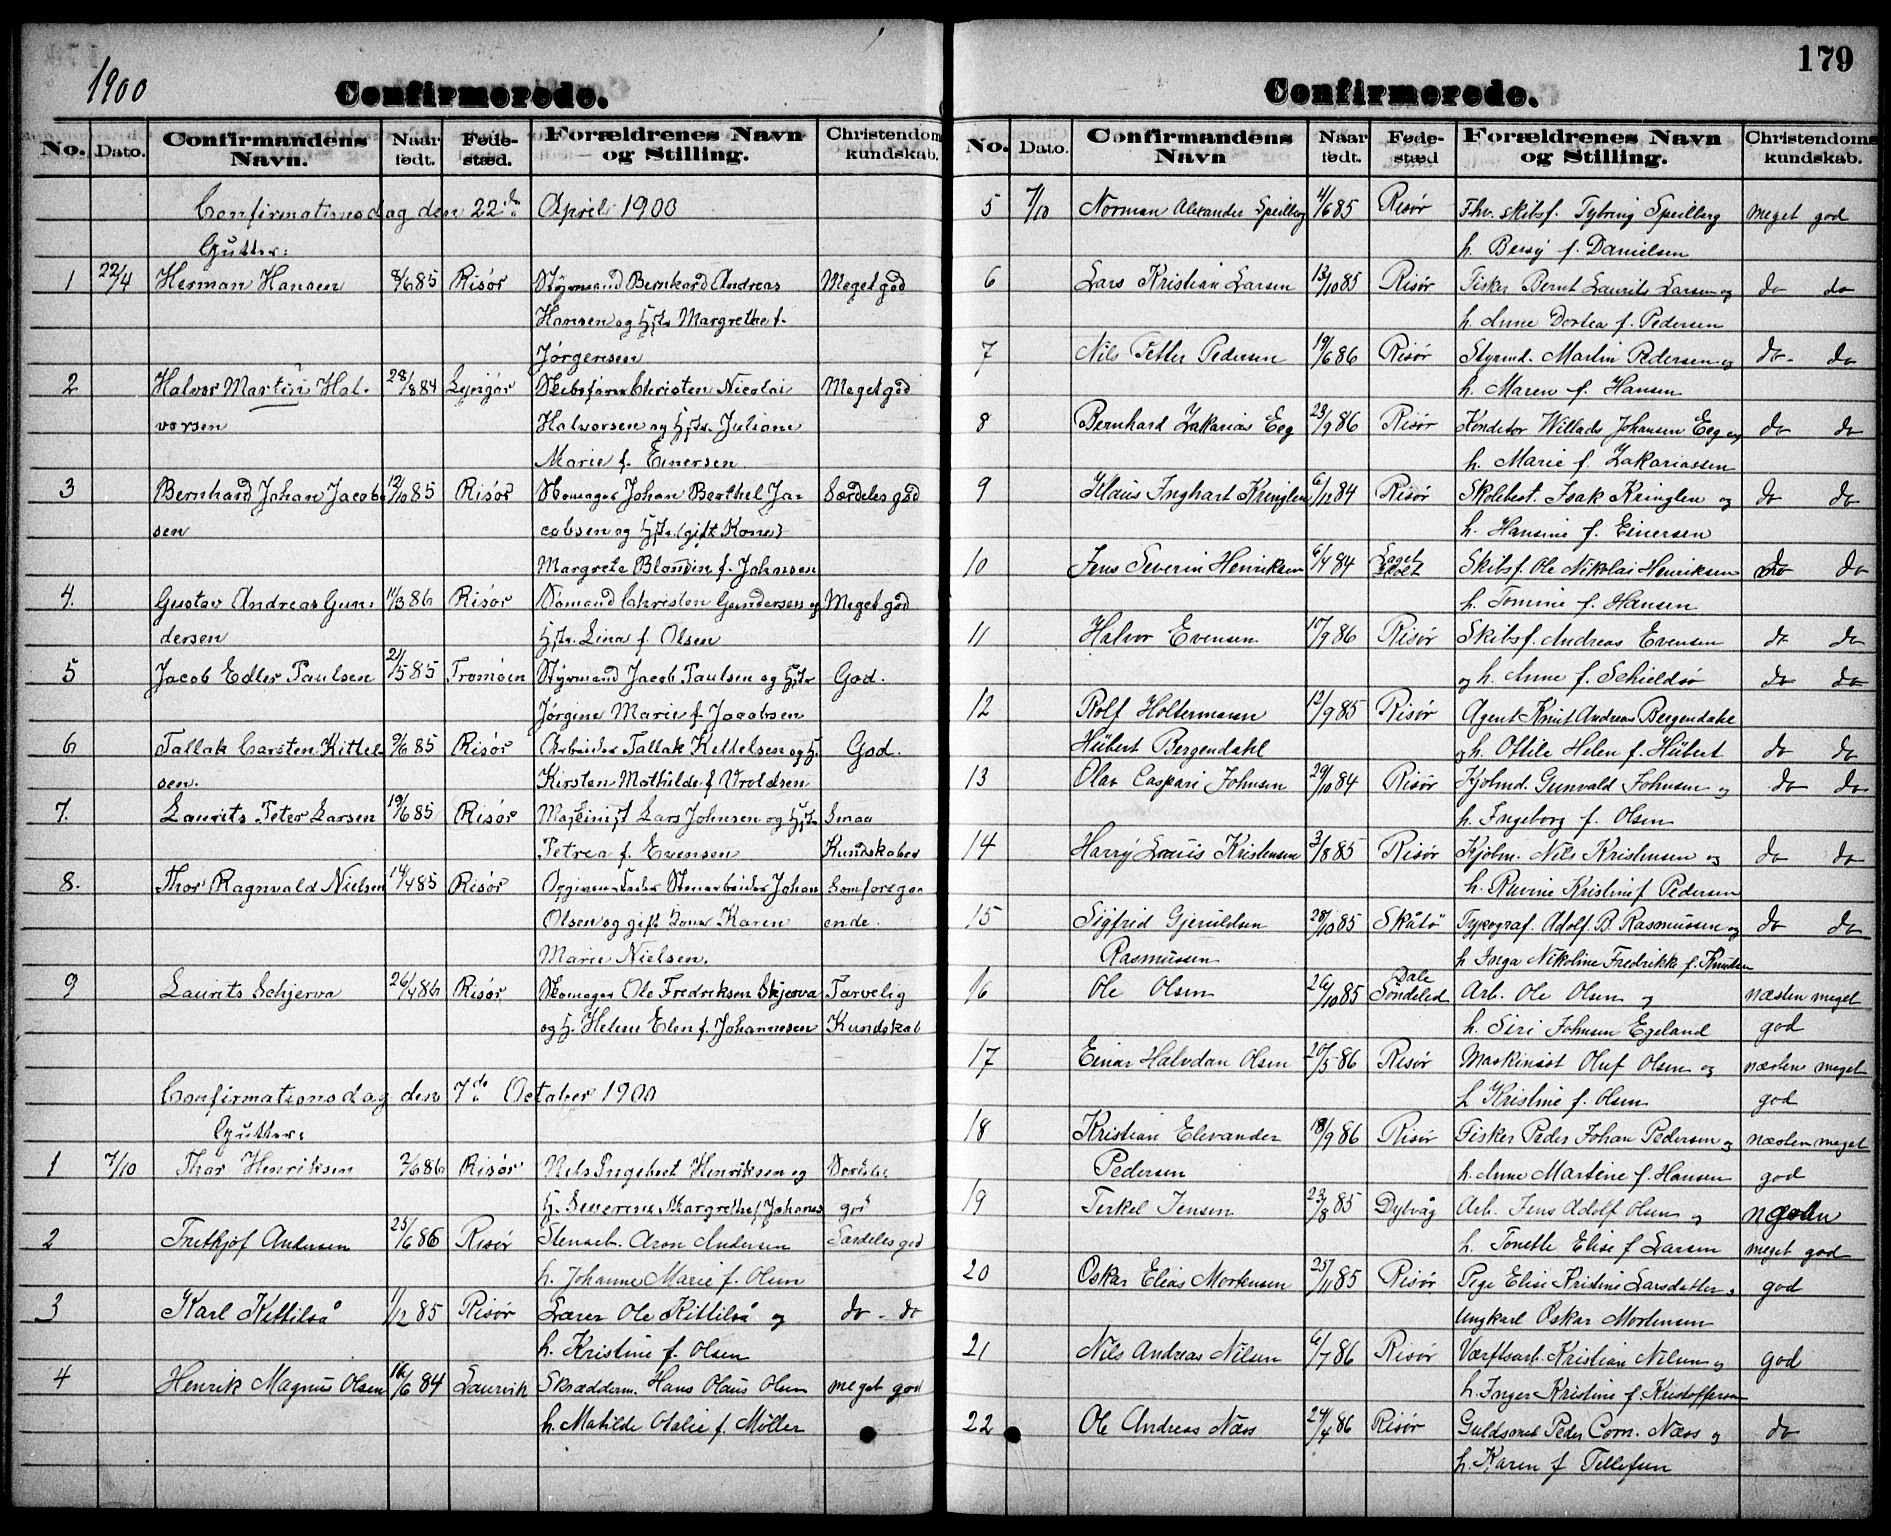 1900
Confirmerede.
No. Dato. Confirmandens Navn. Naar født. Fødestæd. Forældrenes Navn og Stilling. Christendomskundskab.
Confirmationsdag den 22de April 1900
Gutter:
1 22/4 Herman Hansen 8/6 85 Risør Styrmand Bernhard Andreas Meget god
Hansen og Hstr Margrethe f.
Jørgensen
2 Halvor Martin Hal- 28/8 84 Lyngør Skibsfører Christen Nicolai Meget god
vorsen Halvorsen og Hstr. Juliane
Marie f. Einersen
3 Bernhard Johan Jacob- 12/10 85 Risør Skomager Johan Berthel Ja- Særdeles god
sen cobsen og Hstr. (gift Kone)
Margrete Blondin f. Johansen
4. Gustav Andreas Gun- 11/3 86 Risør Sømand Christen Gundersen og Meget god
dersen Hstr. Lina f. Olsen
5 Jacob Edler Paulsen 21/5 85 Tromøen Styrmand Jacob Paulsen og Hstr God.
Jørgine Marie f. Jacobsen
6 Tallak Carsten Kittel- 9/6 85 Risør Arbeider Tallak Kittelsen og H. God.
sen. Kirsten Mathilde f Vroldsen
7. Laurits Peter Larsen 19/6 85 Risør Maskinist Lars Johnsen og Hstr Smaa
Petrea f. Evensen Kundskaber
8. Thor Ragnvald Nielsen 14/4 85 Risør Opgiven Fader Stenarbeider Johan Som foregaa
Olsen og gift Kone Karen ende.
Marie Nielsen.
9 Laurits Schjerva 26/4 86 Risør Skomager Ole Fredriksen Skjerva Tarvelig
og H. Helene Elen f. Johannesen Kundskab
Confirmationsdag den 7de October 1900
Gutter:
1 7/10 Thor Henriksen 2/6 86 Risør Nils Ingebret Henriksen og Særdeles
H. Severine Margrethe f Johans god
2 Fritkjof Andersen 25/6 86 Risør Stenarb. Aron Andersen Særdeles god
h. Johanne Marie f. Olsen
3 Karl Kittilså 1/12 85 Risør Lærer Ole Kittilså og do - do
h. Kristine f. Olsen
4 Henrik Magnus Olsen 16/6 84 Laurvik Skrædderm. Hans Olaus Olsen meget god
h. Matilde Otalie f. Møller
179
Confirmerede.
No. Dato. Confirmandens Navn Naar født. Fødestæd Forældrenes Navn og Stilling. Christendomskundskab.
5 7/10 Norman Alexander Speilberg 4/6 85 Risør Fhv. skibsf. Tybring Speilberg meget god
h. Bessy f. Danielsen
6 Lars Kristian Larsen 13/10 85 Risør Fisker Bernt Laurits Larsen og do do
h. Anne Dortea f. Pedersen
7 Nils Petter Pedersen 19/6 86 Risør Styrmd. Martin Pedersen og do- do
h. Maren f. Hansen
8 Bernhard Zakarias Eeg 23/9 86 Risør Konditor Willads Johansen Eeg og do do
h. Marie f. Zakariassen
9 Klaus Inghart Kringlen 6/12 84 Risør Skolebest. Isak Kringlen og do do
h. Hansine f. Einersen
10 Jens Severin Henriksen 6/4 84 Skibsf. Ole Nikolai Henriksen do do
h. Tomine f. Hansen
11 Halvor Evensen 17/9 86 Risør Skibsf. Andreas Evensen do do
og h. Anne f. Schieldsø do do
12 Rolf Holtermann 12/9 85 Risør Agent Knut Andreas Bergendahl
Hübert Bergendahl og h. Otilie Helen f. Hübert do do
13 Olav Caspari Johnsen 29/10 84 Risør Kjølmd. Gunvald Johnsen og do do
h. Ingeborg f. Olsen
14 Harry Louis Kristensen 3/8 85 Risør Kjølm. Nils Kristensen og do do
h. Ruvine Kristine f Pedersen
15 Sigfrid Gjeruldsen 28/10 85 Skåtø Typograf. Adolf B. Rasmussen og do do
Rasmussen h Inga Nikoline Fredrikke f. Knudsen
16 Ole Olsen 26/10 85 Dale Søndeled Arb. Ole Olsen og næsten meget
h. Siri Johnsen Egeland god
17 Einar Halvdan Olsen 20/3 86 Risør Maskinist Oluf Olsen og næsten meget
h Kristine f. Olsen god
18 Kristian Elevander 18/9 86 Risør Fisker Peder Johan Pedersen og næsten meget
Pedersen h. Anne Martine f. Hansen god
19 Terkel Jensen 23/8 85 Dybvåg Arb. Jens Adolf Olsen og
h. Tonette Elise f Larsen meget god
20 Oskar Elias Mortensen 25/11 85 Risør Pige Elise Kristine Larsdatter og god
Ungkarl Oskar Mortensen
21 Nils Andreas Nilsen 6/7 86 Risør Værftsarb. Kristian Nilsen og god
h. Inger Kristine f. Kristoffersen
22 Ole Andreas Næss 24/4 86 Risør Guldsmed Peder Corn. Næss og do
h. Karen f Tellefsen